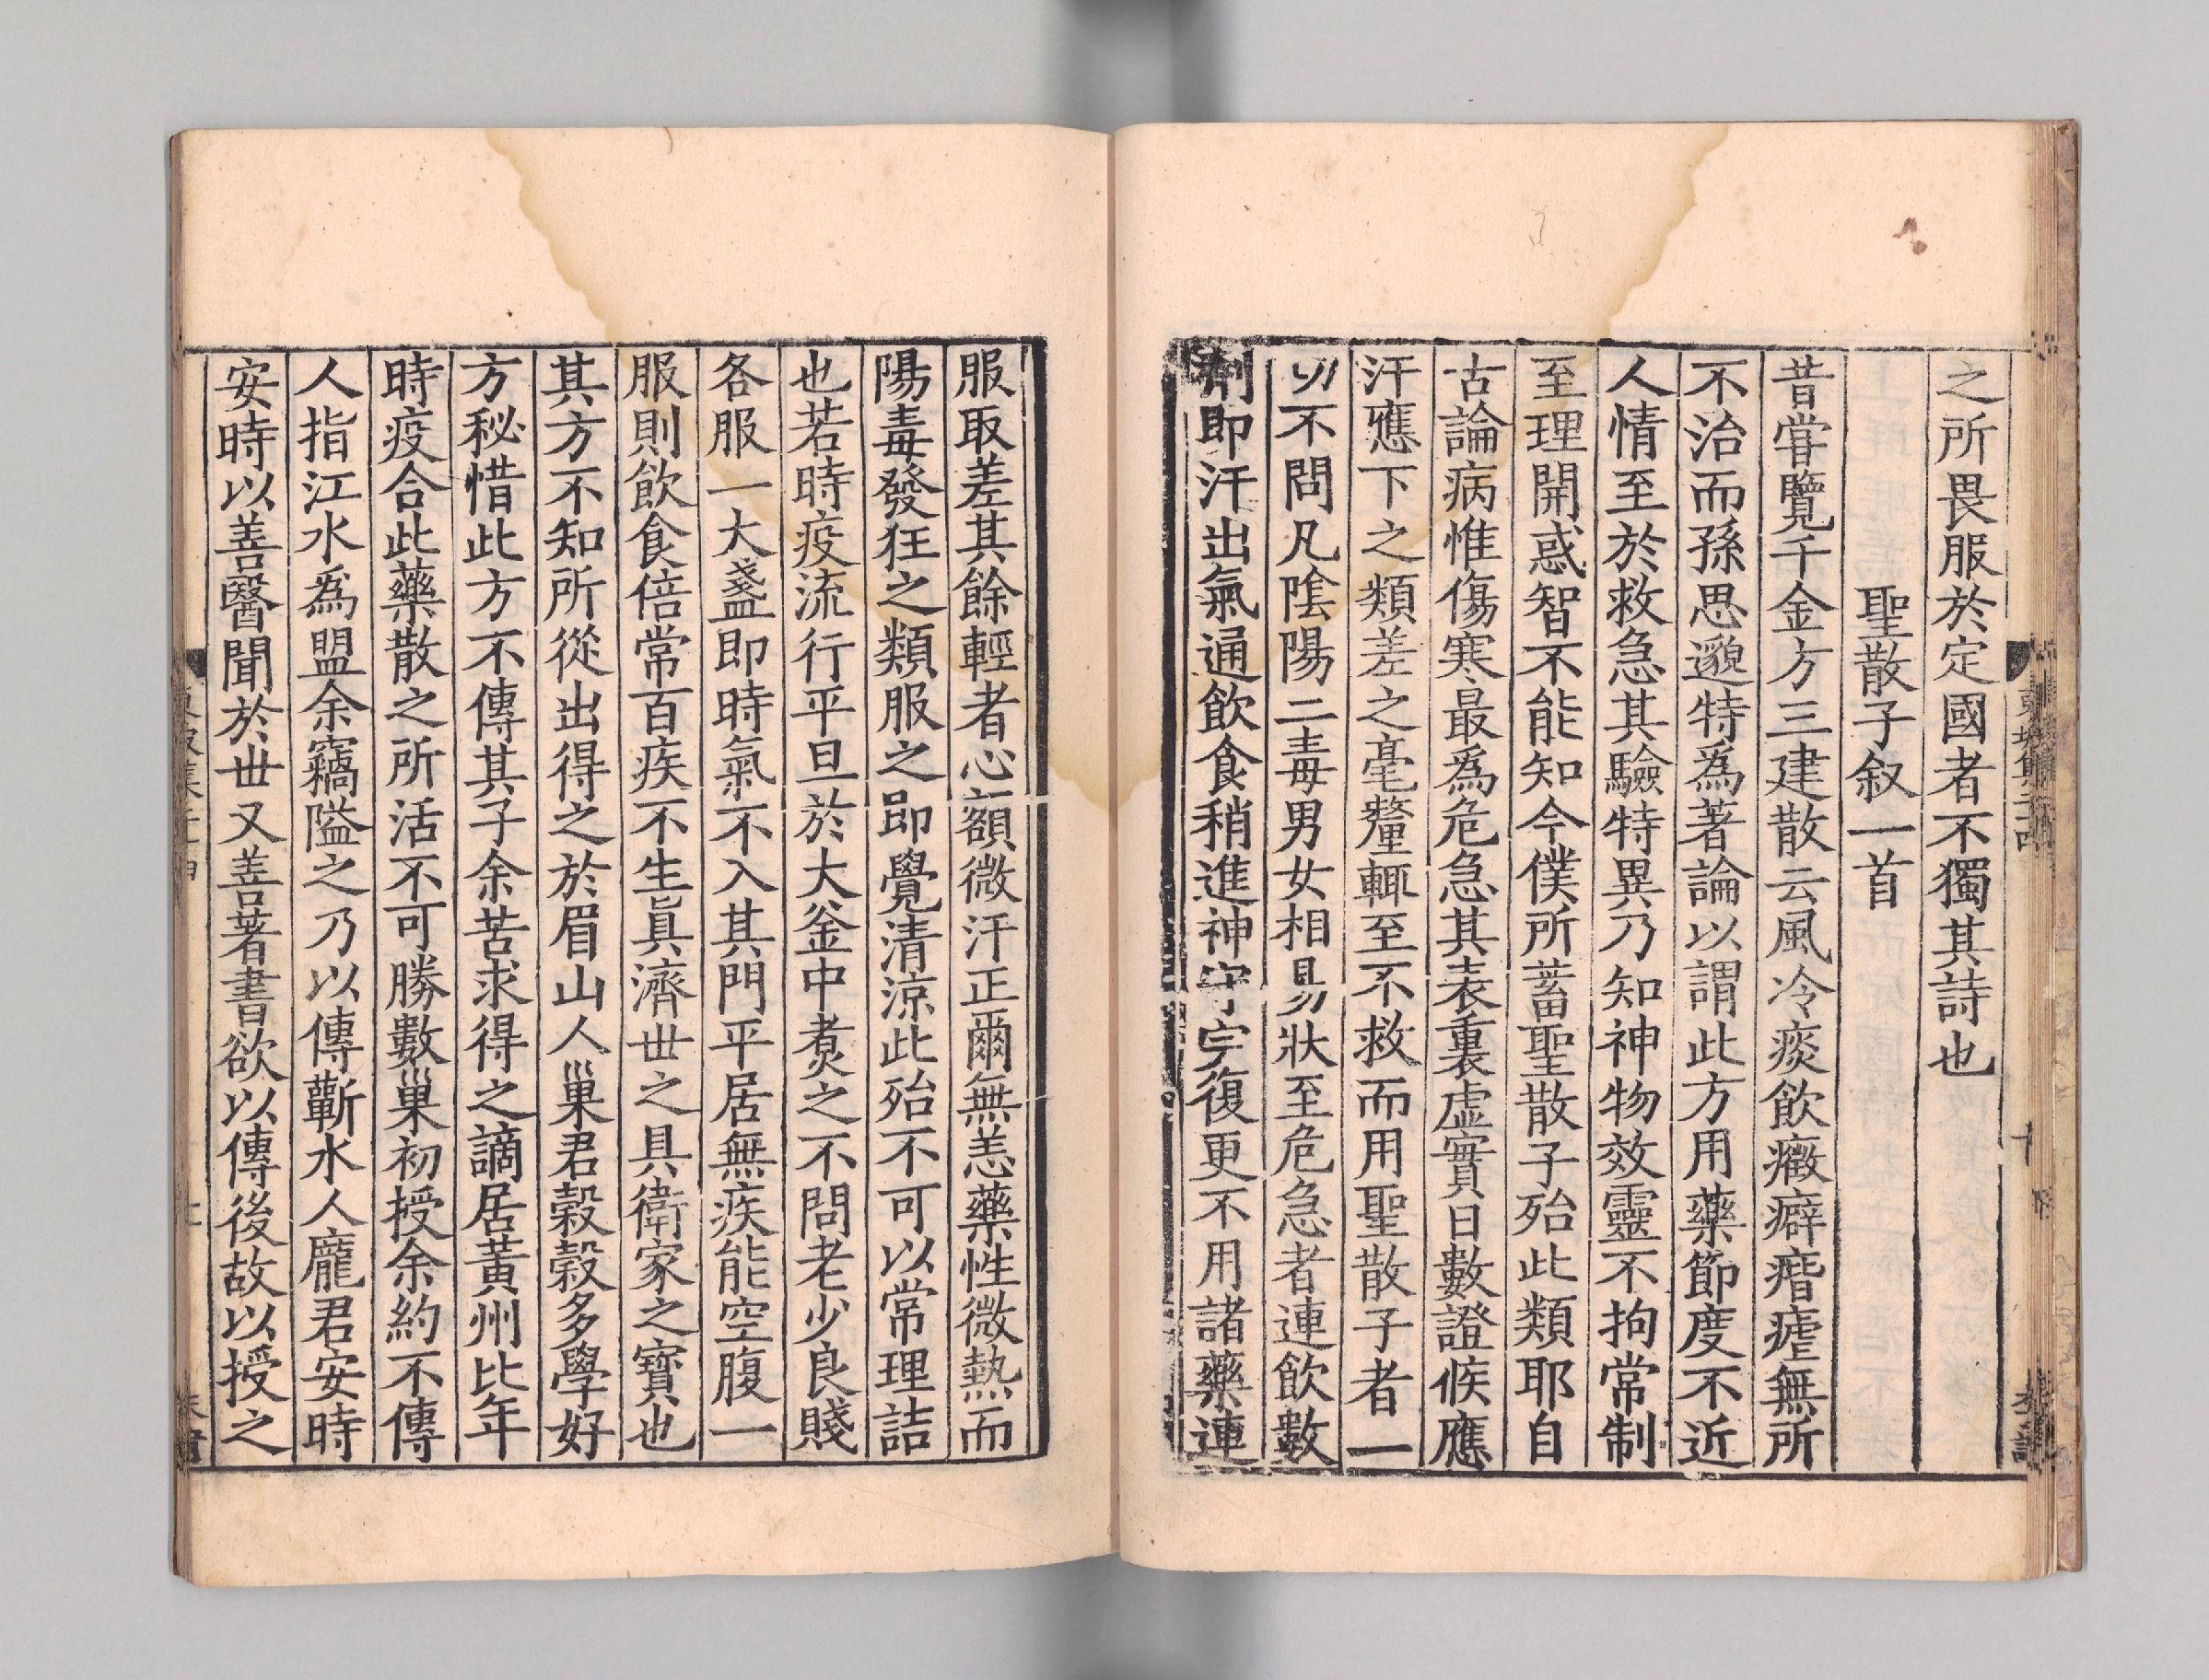 之所畏服於定國者不獨其詩也
聖散子叙一首
昔甞覽千金方三建散云風冷痰飲癥癖㾱瘧無所
不治而孫思邈特爲著論以謂此方用藥節度不近
人情至於救急其驗特異乃知神物效靈不拘常制
至理開惑智不能知今僕所蓄聖散子殆此類耶自
古論病惟傷寒最爲危急其表裏虛實日數證候應
汗應下之類差之毫釐輒至不救而用聖散子者一
切不問凡陰陽二毒男女相易狀至危急者連飲數
劑即汗出氣通飲食稍進神守完復更不用諸藥連
服取差其餘輕者心額微汗正爾無恙藥性微熱而
陽毒發狂之類服之即覺清涼此殆不可以常理詰
也若時疫流行平旦於大釜中煑之不問老少良賤
各服一大盞即時氣不入其門平居無疾能空腹一
服則飲食倍常百疾不生眞濟世之具衛家之寶也
其方不知所從出得之於眉山人巢君穀穀多學好
方秘惜此方不傳其子余苦求得之謫居黃州比年
時疫合此藥散之所活不可勝數巢初授余約不傳
人指江水爲盟余竊隘之乃以傳蘄水人龐君安時
安時以善醫聞於世又善著書欲以傳後故以授之